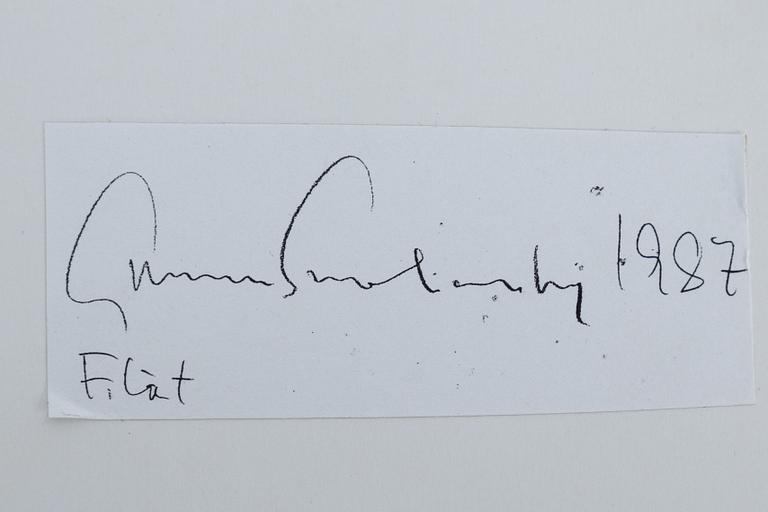 Gunnar Smoliansky 1987
Filat